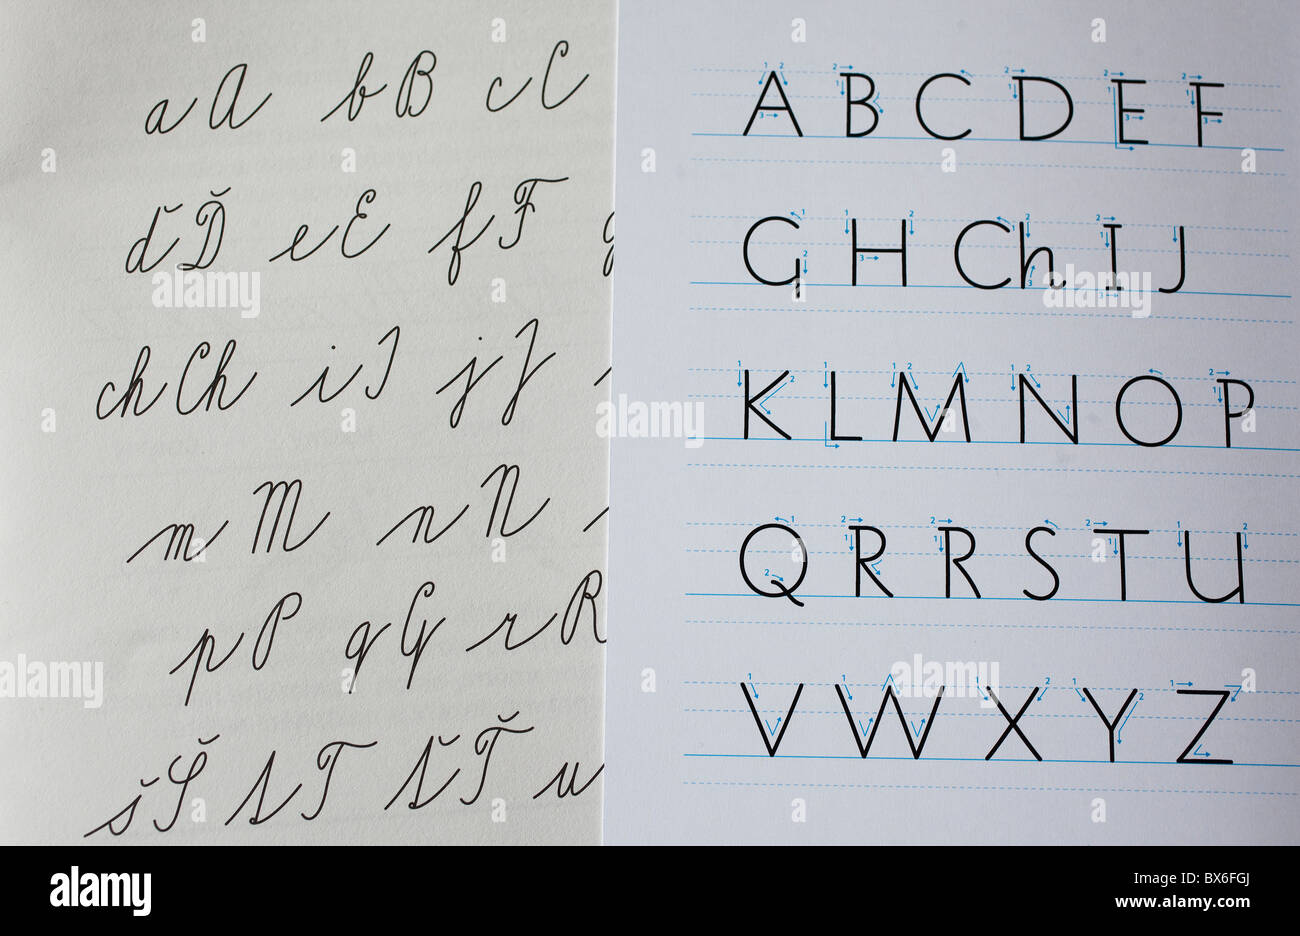 a A b B c C
ď Ď e E f F
ch Ch i I j J
m M n N
p P q Q r R
š Š t T ť Ť u
A B C D E F
G H Ch I J
K L M N O P
Q R R S T U
V W X Y Z
alamy
Image ID: BX6FGJ
www.alamy.com